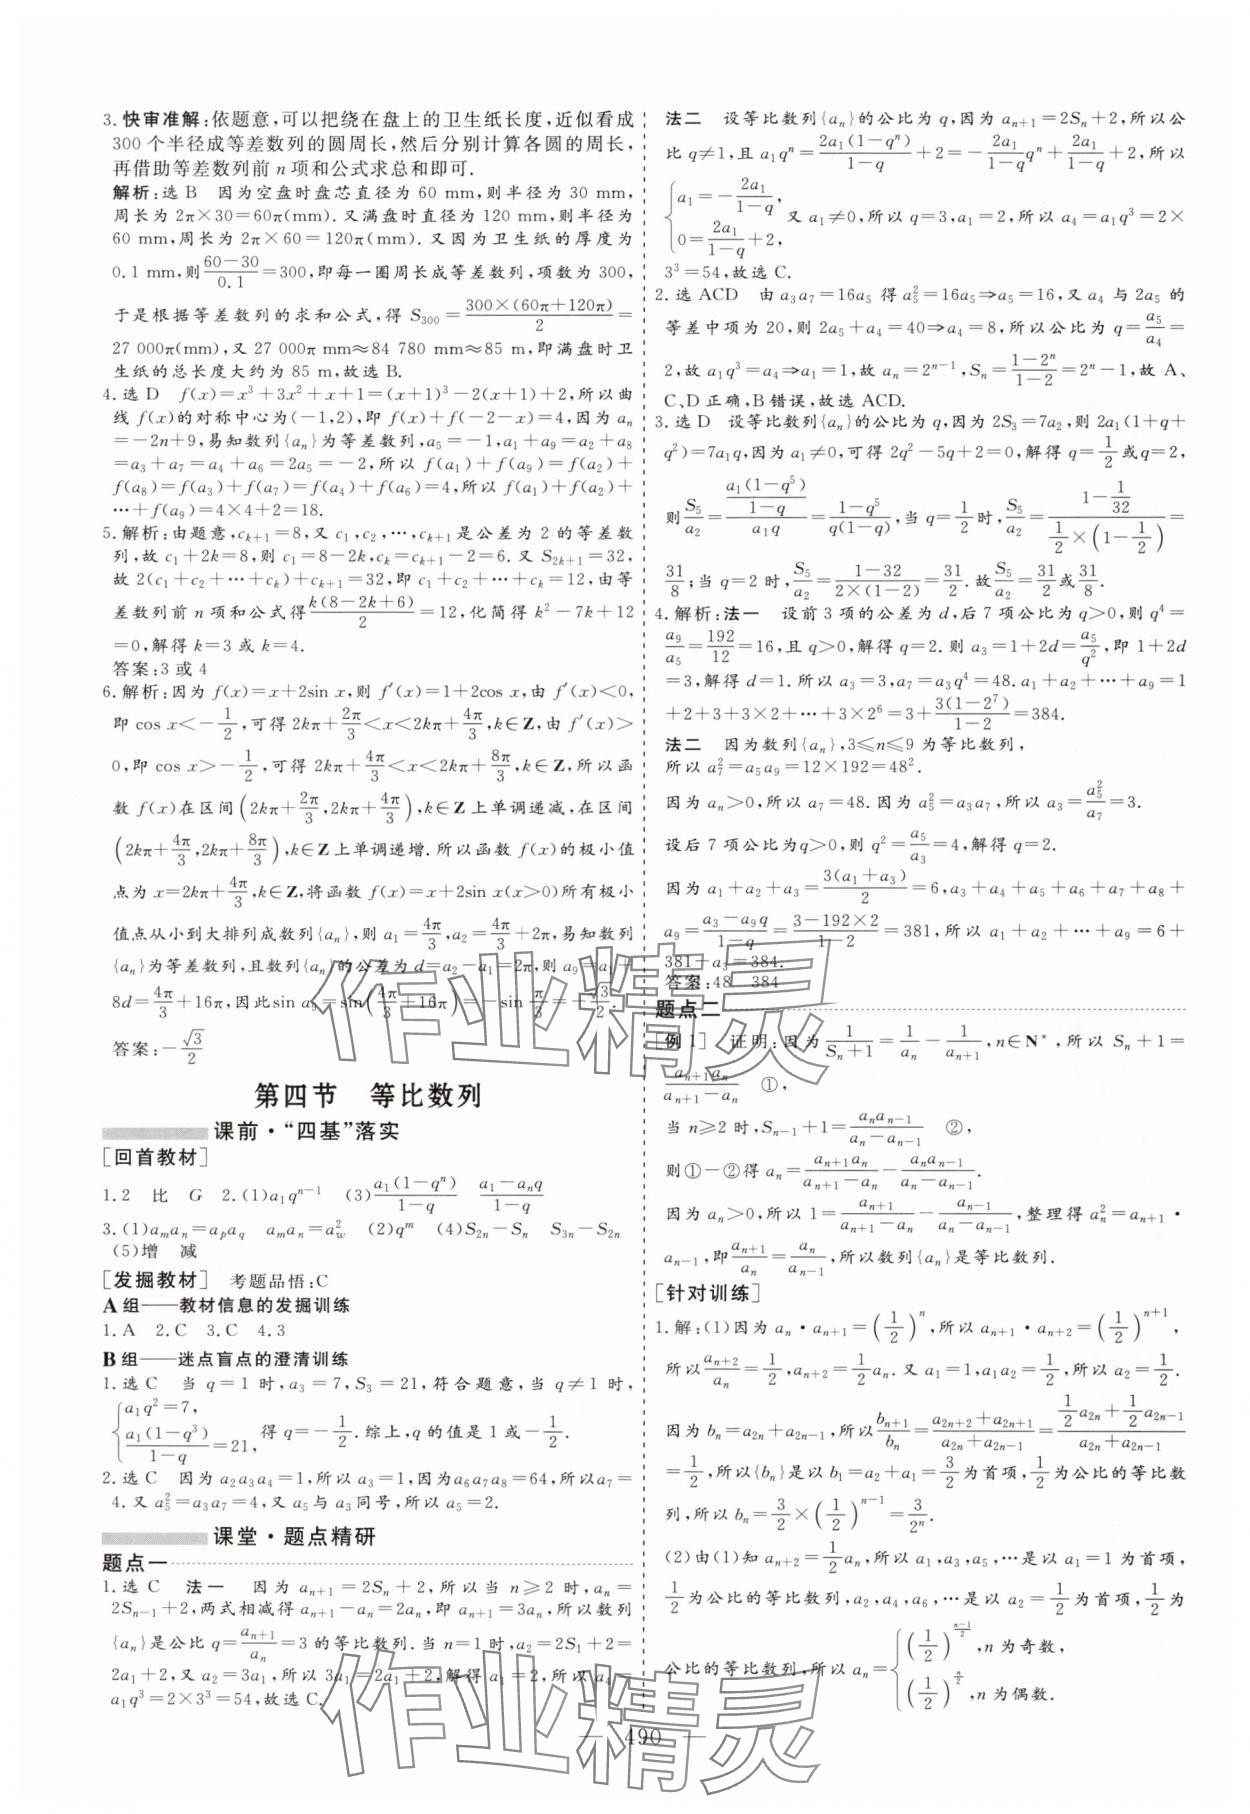 3. 快审准解:依题意,可以把绕在盘上的卫生纸长度,近似看成
300 个半径成等差数列的圆周长,然后分别计算各圆的周长,
再借助等差数列前 n 项和公式求总和即可.
解析:选 B 因为空盘时盘芯直径为 60 mm,则半径为 30 mm,
周长为 2π×30=60π(mm). 又满盘时直径为 120 mm,则半径为
60 mm,周长为 2π×60=120π(mm). 又因为卫生纸的厚度为
0.1 mm,则(60-30)/0.1=300,即每一圈周长成等差数列,项数为 300,
于是根据等差数列的求和公式,得 S₃₀₀=300×(60π+120π)/2=
27 000π(mm),又 27 000π mm≈84 780 mm≈85 m,即满盘时卫
生纸的总长度大约为 85 m,故选 B.
4. 选 D f(x)=x³+3x²+x+1=(x+1)³-2(x+1)+2,所以曲
线 f(x)的对称中心为(-1,2),即 f(x)+f(-2-x)=4,因为 aₙ
=-2n+9,易知数列{aₙ}为等差数列,a₅=-1,a₁+a₉=a₂+a₈
=a₃+a₇=a₄+a₆=2a₅=-2,所以 f(a₁)+f(a₉)=f(a₂)+
f(a₈)=f(a₃)+f(a₇)=f(a₄)+f(a₆)=4,所以 f(a₁)+f(a₂)+
…+f(a₉)=4×4+2=18.
5. 解析:由题意,c_{k+1}=8,又 c₁,c₂,…,c_{k+1}是公差为 2 的等差数
列,故 c₁+2k=8,则 c₁=8-2k,c_k=c_{k+1}-2=6. 又 S_{2k+1}=32,
故 2(c₁+c₂+…+c_k)+c_{k+1}=32,即 c₁+c₂+…+c_k=12,由等
差数列前 n 项和公式得k(8-2k+6)/2=12,化简得 k²-7k+12
=0,解得 k=3 或 k=4.
答案:3 或 4
6. 解析:因为 f(x)=x+2sin x,则 f′(x)=1+2cos x,由 f′(x)<0,
即 cos x<-1/2,可得 2kπ+2π/3<x<2kπ+4π/3,k∈Z,由 f′(x)>
0,即 cos x>-1/2,可得 2kπ+4π/3<x<2kπ+8π/3,k∈Z,所以函
数 f(x)在区间(2kπ+2π/3,2kπ+4π/3),k∈Z 上单调递减,在区间
(2kπ+4π/3,2kπ+8π/3),k∈Z 上单调递增. 所以函数 f(x)的极小值
点为 x=2kπ+4π/3,k∈Z,将函数 f(x)=x+2sin x(x>0)所有极小
值点从小到大排列成数列{aₙ},则 a₁=4π/3,a₂=4π/3+2π,易知数列
{aₙ}为等差数列,且数列{aₙ}的公差为 d=a₂-a₁=2π,则 a₉=a₁+
8d=4π/3+16π,因此sin a₉=sin(4π/3+16π)=-sin π/3=-√3/2.
答案:-√3/2
第四节 等比数列
课前·“四基”落实
[回首教材]
1. 2 比 G 2. (1)a₁qⁿ⁻¹ (3)a₁(1-qⁿ)/(1-q) (a₁-aₙq)/(1-q)
3. (1)aₘaₙ=aₚa_q aₘaₙ=a_w² (2)qᵐ (4)S₂ₙ-Sₙ S₃ₙ-S₂ₙ
(5)增 减
[发掘教材] 考题品悟:C
A 组——教材信息的发掘训练
1. A 2. C 3. C 4. 3
B 组——迷点盲点的澄清训练
1. 选 C 当 q=1 时,a₃=7,S₃=21,符合题意,当 q≠1 时,
{a₁q²=7, a₁(1-q³)/(1-q)=21, 得 q=-1/2. 综上,q 的值是 1 或-1/2.
2. 选 C 因为 a₂a₃a₄=1,所以 a₃=1,因为a₆a₇a₈=64,所以a₇=
4. 又 a₅²=a₃a₇=4,又 a₅与 a₃同号,所以 a₅=2.
课堂·题点精研
题点一
1. 选 C 法一 因为 aₙ₊₁=2Sₙ+2,所以当 n≥2 时,aₙ=
2Sₙ₋₁+2,两式相减得 aₙ₊₁-aₙ=2aₙ,即 aₙ₊₁=3aₙ,所以数列
{aₙ}是公比 q=aₙ₊₁/aₙ=3 的等比数列. 当 n=1 时,a₂=2S₁+2=
2a₁+2,又 a₂=3a₁,所以 3a₁=2a₁+2,解得 a₁=2,所以 a₄=
a₁q³=2×3³=54,故选 C.
法二 设等比数列{aₙ}的公比为 q,因为 aₙ₊₁=2Sₙ+2,所以公
比 q≠1,且 a₁qⁿ=2a₁(1-qⁿ)/(1-q)+2=-2a₁/(1-q) qⁿ+2a₁/(1-q)+2,所以
{a₁=-2a₁/(1-q), 0=2a₁/(1-q)+2, 又 a₁≠0,所以 q=3,a₁=2,所以 a₄=a₁q³=2×
3³=54,故选 C.
2. 选 ACD 由 a₃a₇=16a₅ 得 a₅²=16a₅⇒a₅=16,又 a₄ 与 2a₅ 的
等差中项为 20,则 2a₅+a₄=40⇒a₄=8,所以公比为 q=a₅/a₄=
2,故 a₁q³=a₄⇒a₁=1,故 aₙ=2ⁿ⁻¹,Sₙ=(1-2ⁿ)/(1-2)=2ⁿ-1,故 A、
C、D 正确,B 错误,故选 ACD.
3. 选 D 设等比数列{aₙ}的公比为 q,因为 2S₃=7a₂,则 2a₁(1+q+
q²)=7a₁q,因为 a₁≠0,可得 2q²-5q+2=0,解得 q=1/2或 q=2,
则S₅/a₂=(a₁(1-q⁵)/(1-q))/(a₁q)=(1-q⁵)/(q(1-q)),当 q=1/2时,S₅/a₂=(1-1/32)/(1/2×(1-1/2))=
31/8;当 q=2 时,S₅/a₂=(1-32)/(2×(1-2))=31/2. 故S₅/a₂=31/2或31/8.
4. 解析:法一 设前 3 项的公差为 d,后 7 项公比为 q>0,则 q⁴=
a₉/a₅=192/12=16,且 q>0,解得 q=2. 则 a₃=1+2d=a₅/q²,即 1+2d
=3,解得 d=1. 所以 a₃=3,a₇=a₃q⁴=48. a₁+a₂+…+a₉=1
+2+3+3×2+…+3×2⁶=3+3(1-2⁷)/(1-2)=384.
法二 因为数列{aₙ},3≤n≤9 为等比数列,
所以 a₇²=a₅a₉=12×192=48².
因为 aₙ>0,所以 a₇=48. 因为 a₅²=a₃a₇,所以 a₃=a₅²/a₇=3.
设后 7 项公比为q>0,则 q²=a₅/a₃=4,解得 q=2.
因为 a₁+a₂+a₃=3(a₁+a₃)/2=6,a₃+a₄+a₅+a₆+a₇+a₈+
a₉=(a₃-a₉q)/(1-q)=(3-192×2)/(1-2)=381,所以 a₁+a₂+…+a₉=6+
381-a₃=384.
答案:48 384
题点二
[例 1] 证明:因为1/(Sₙ+1)=1/aₙ-1/aₙ₊₁,n∈N*,所以 Sₙ+1=
aₙ₊₁aₙ/(aₙ₊₁-aₙ) ①,
当 n≥2 时,Sₙ₋₁+1=aₙaₙ₋₁/(aₙ-aₙ₋₁) ②,
则①-②得 aₙ=aₙ₊₁aₙ/(aₙ₊₁-aₙ)-aₙaₙ₋₁/(aₙ-aₙ₋₁).
因为 aₙ>0,所以 1=aₙ₊₁/(aₙ₊₁-aₙ)-aₙ₋₁/(aₙ-aₙ₋₁),整理得 aₙ²=aₙ₊₁·
aₙ₋₁,即aₙ₊₁/aₙ=aₙ/aₙ₋₁,所以数列{aₙ}是等比数列.
[针对训练]
1. 解:(1)因为 aₙ·aₙ₊₁=(1/2)ⁿ,所以 aₙ₊₁·aₙ₊₂=(1/2)ⁿ⁺¹,
所以aₙ₊₂/aₙ=1/2,aₙ₊₂=1/2aₙ. 又 a₁=1,a₁a₂=1/2,所以 a₂=1/2.
因为 bₙ=a₂ₙ+a₂ₙ₋₁,所以bₙ₊₁/bₙ=(a₂ₙ₊₂+a₂ₙ₊₁)/(a₂ₙ+a₂ₙ₋₁)=(1/2a₂ₙ+1/2a₂ₙ₋₁)/(a₂ₙ+a₂ₙ₋₁)
=1/2,所以{bₙ}是以 b₁=a₂+a₁=3/2为首项,1/2为公比的等比数
列,所以 bₙ=3/2×(1/2)ⁿ⁻¹=3/2ⁿ.
(2)由(1)知 aₙ₊₂=1/2aₙ,所以 a₁,a₃,a₅,…是以 a₁=1 为首项,
1/2为公比的等比数列,a₂,a₄,a₆,…是以 a₂=1/2为首项,1/2为
公比的等比数列,所以 aₙ={(1/2)^((n-1)/2),n 为奇数, (1/2)^(n/2),n 为偶数.
— 490 —
作业精灵
作业精灵